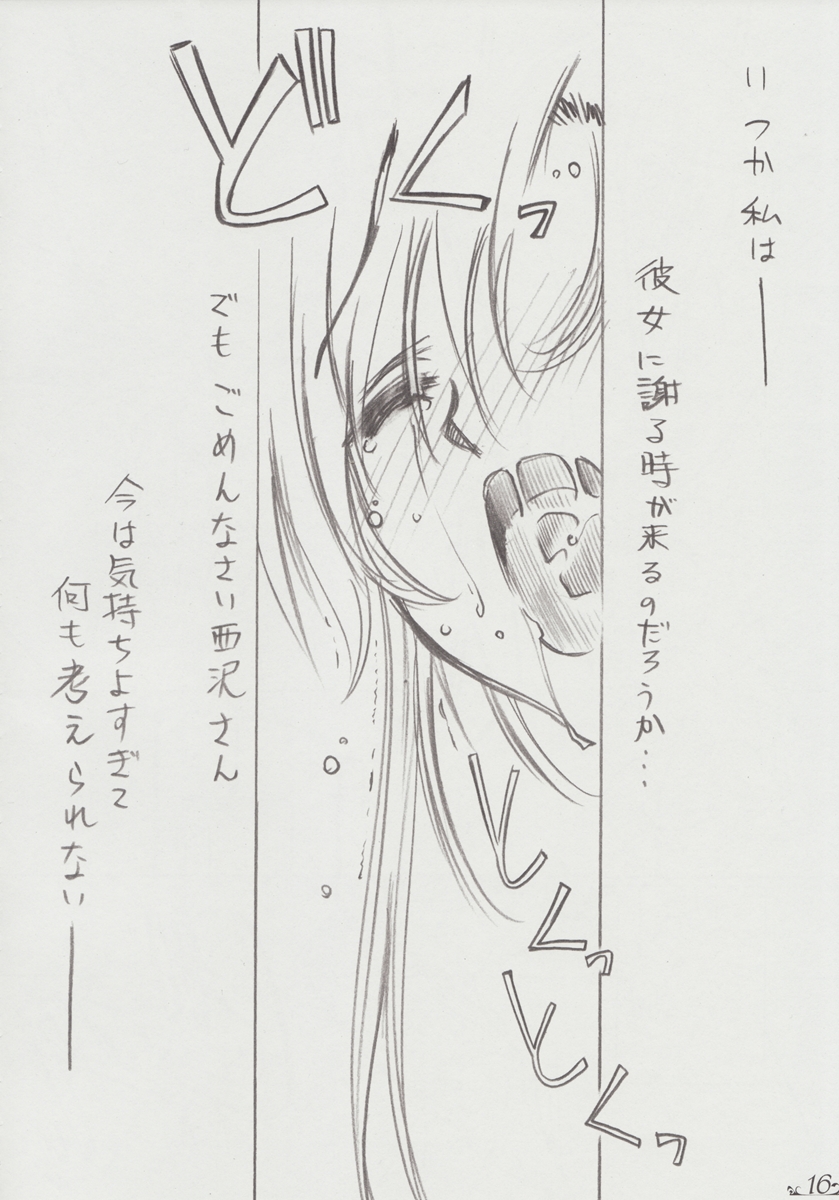 いつか私は――
彼女に謝る時が来るのだろうか…
どくっ
でもごめんなさい西沢さん
今は気持ちよすぎて
何も考えられない――
とくっ
とくっ
16